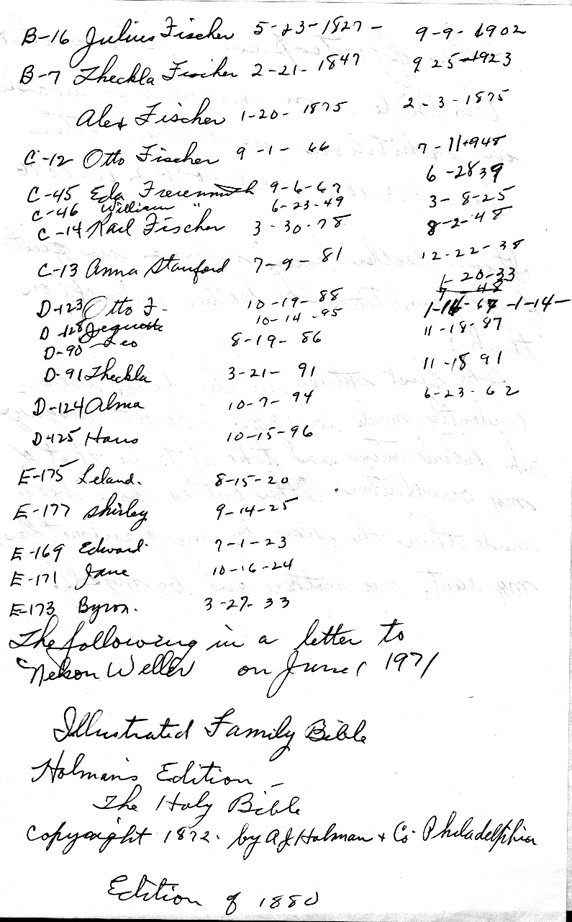 B-16 Julius Fischer 5-23-1827 - 9-9-1902
B-7 Theckla Fischer 2-21-1847 9 25-1923
Alex Fischer 1-20-1875 2-3-1875
C-12 Otto Fischer 9-1-66 7-11-1948
6-2839
C-45 Eda Freienmuth 9-6-67 3-8-25
C-46 William " 6-23-49
C-14 Karl Fischer 3-30-78 8-2-48
C-13 Anna Stanford 7-9-81 12-22-38
1-20-33
D-123 Otto F- 10-19-88 1-14-
D-128 10-14-95
D-90 Leo 8-19-86 11-18-87
D-91 Theckla 3-21-91 11-18 91
D-124 Alma 10-7-94 6-23-62
D-125 Hans 10-15-96
E-175 Leland. 8-15-20
E-177 Shirley 9-14-25
E-169 Edward. 7-1-23
E-171 Jane 10-16-24
E-173 Byron. 3-27-33
The following in a letter to
Nelson Weller on June 1 1971
Illustrated Family Bible
Holman's Edition -
The Holy Bible
Copyright 1872. by AJ Holman + Co. Philadelphia
Edition of 1880